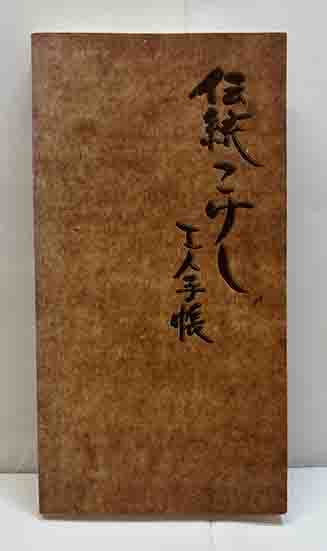 伝統こけし
工人手帳